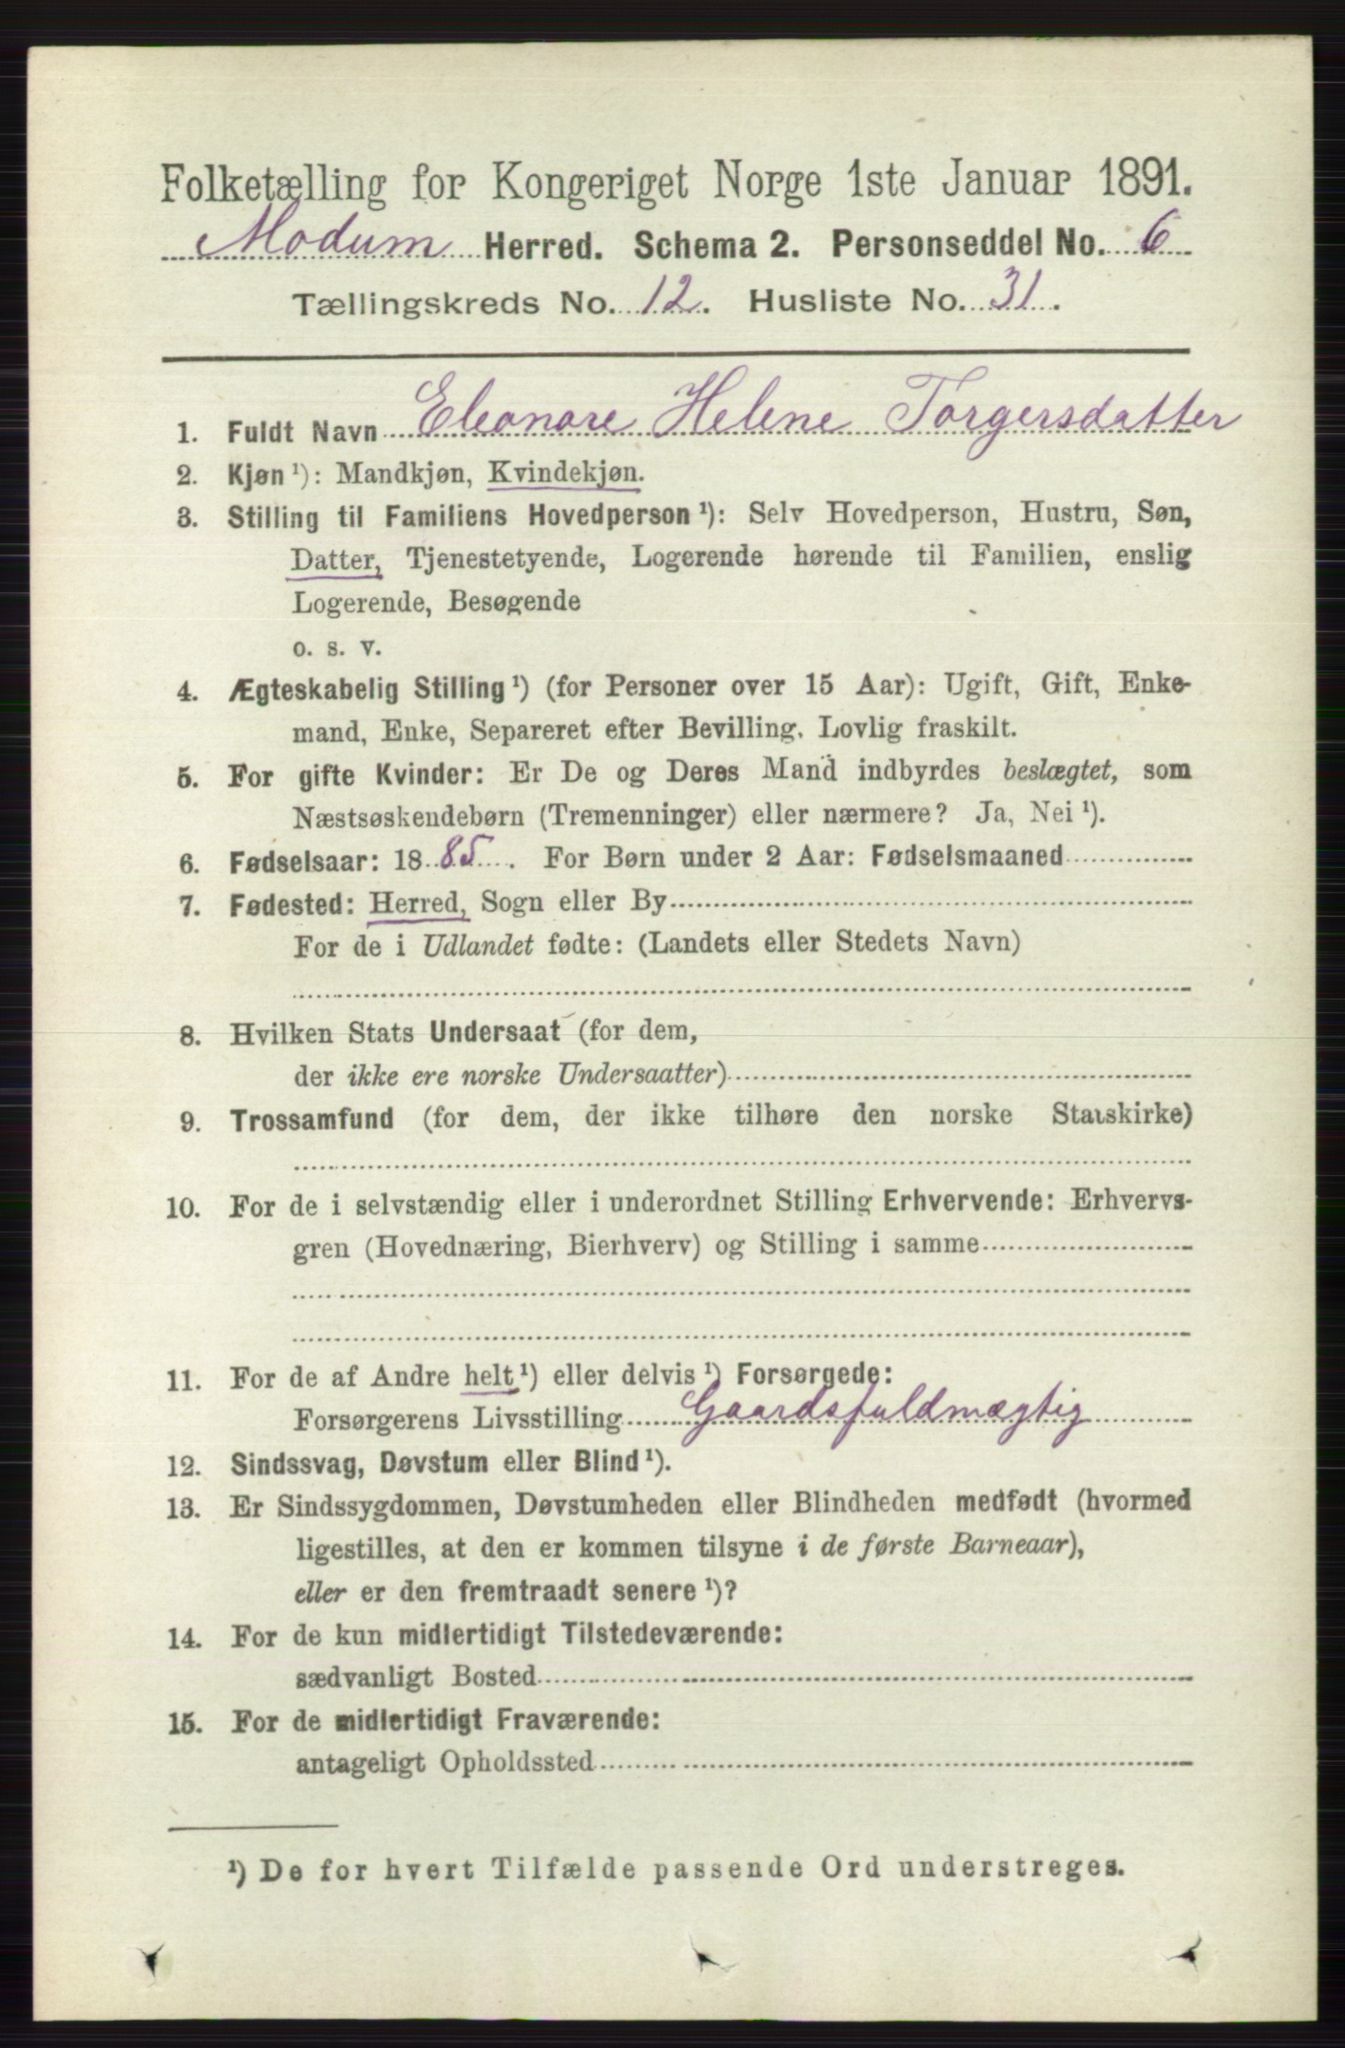 Folketælling for Kongeriget Norge 1ste Januar 1891.
Modum Herred. Schema 2. Personseddel No. 6
Tællingskreds No. 12. Husliste No. 31.
1. Fuldt Navn Eleonore Helene Torgersdatter
2. Kjøn ¹): Mandkjøn, Kvindekjøn.
3. Stilling til Familiens Hovedperson ¹): Selv Hovedperson, Hustru, Søn,
Datter, Tjenestetyende, Logerende hørende til Familien, enslig
Logerende, Besøgende
o. s. v.
4. Ægteskabelig Stilling ¹) (for Personer over 15 Aar): Ugift, Gift, Enke-
mand, Enke, Separeret efter Bevilling. Lovlig fraskilt.
5. For gifte Kvinder: Er De og Deres Mand indbyrdes beslægtet, som
Næstsøskendebørn (Tremenninger) eller nærmere? Ja, Nei ¹).
6. Fødselsaar: 1885. For Børn under 2 Aar: Fødselsmaaned
7. Fødested: Herred, Sogn eller By
For de i Udlandet fødte: (Landets eller Stedets Navn)
8. Hvilken Stats Undersaat (for dem,
der ikke ere norske Undersaatter)
9. Trossamfund (for dem, der ikke tilhøre den norske Statskirke)
10. For de i selvstændig eller i underordnet Stilling Erhvervende: Erhvervs-
gren (Hovednæring, Bierhverv) og Stilling i samme
11. For de af Andre helt ¹) eller delvis ¹) Forsørgede:
Forsørgerens Livsstilling Gaardsfuldmægtig
12. Sindssvag, Døvstum eller Blind ¹).
13. Er Sindssygdommen, Døvstumheden eller Blindheden medfødt (hvormed
ligestilles, at den er kommen tilsyne i de første Barneaar),
eller er den fremtraadt senere ¹)?
14. For de kun midlertidigt Tilstedeværende:
sædvanligt Bosted
15. For de midlertidigt Fraværende:
antageligt Opholdssted
¹) De for hvert Tilfælde passende Ord understreges.